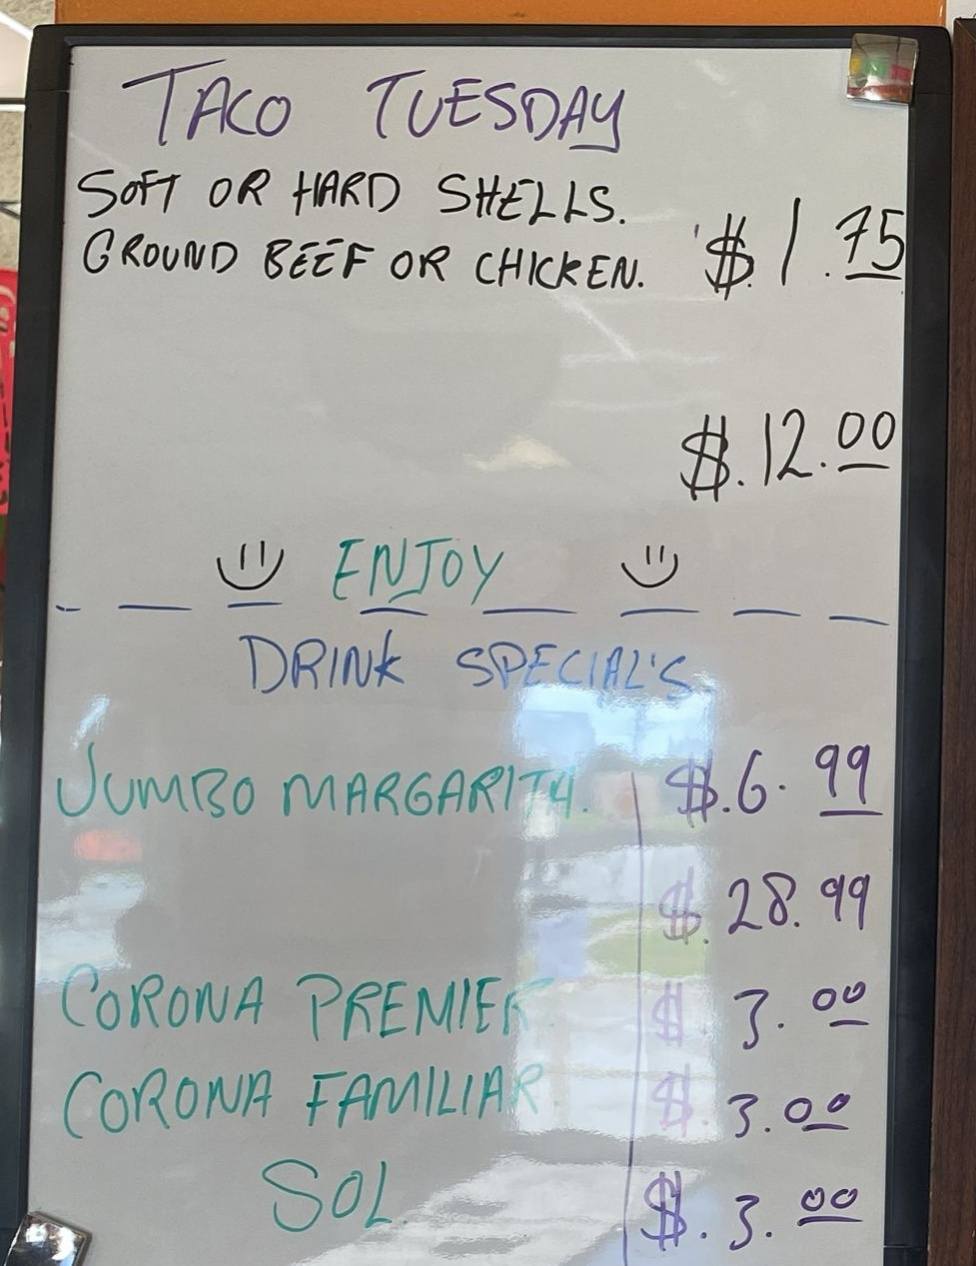 TACO TUESDAY
SOFT OR HARD SHELLS.
GROUND BEEF OR CHICKEN. $.1.75
$.12.00
ENJOY
DRINK SPECIAL'S.
JUMBO MARGARITA. $.6.99
$.28.99
CORONA PREMIER $.3.00
CORONA FAMILIAR $.3.00
SOL. $.3.00